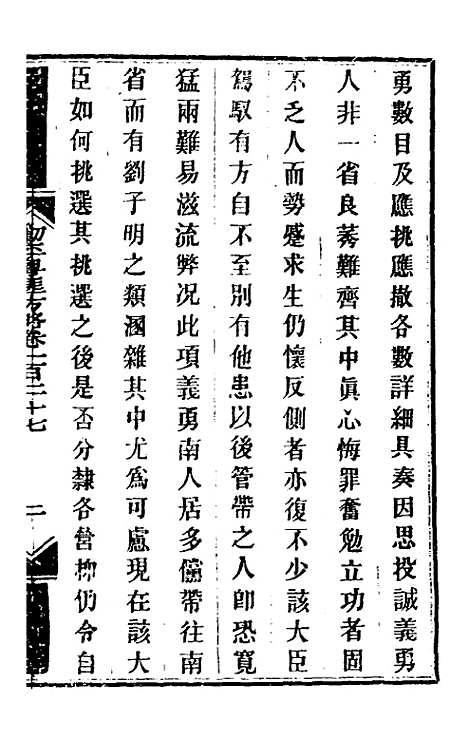 勇數目及應挑應撤各數詳細具奏因思投誠義勇
人非一省良莠難齊其中眞心悔罪奮勉立功者固
不乏人而勢蹙求生仍懷反側者亦復不少該大臣
駕馭有方自不至別有他患以後管帶之人卽恐寬
猛兩難易滋流弊况此項義勇南人居多儻帶往南
省而有劉子明之類溷雜其中尤爲可慮現在該大
臣如何挑選其挑選之後是否分隸各營抑仍令自
方略卷二百二十七
二